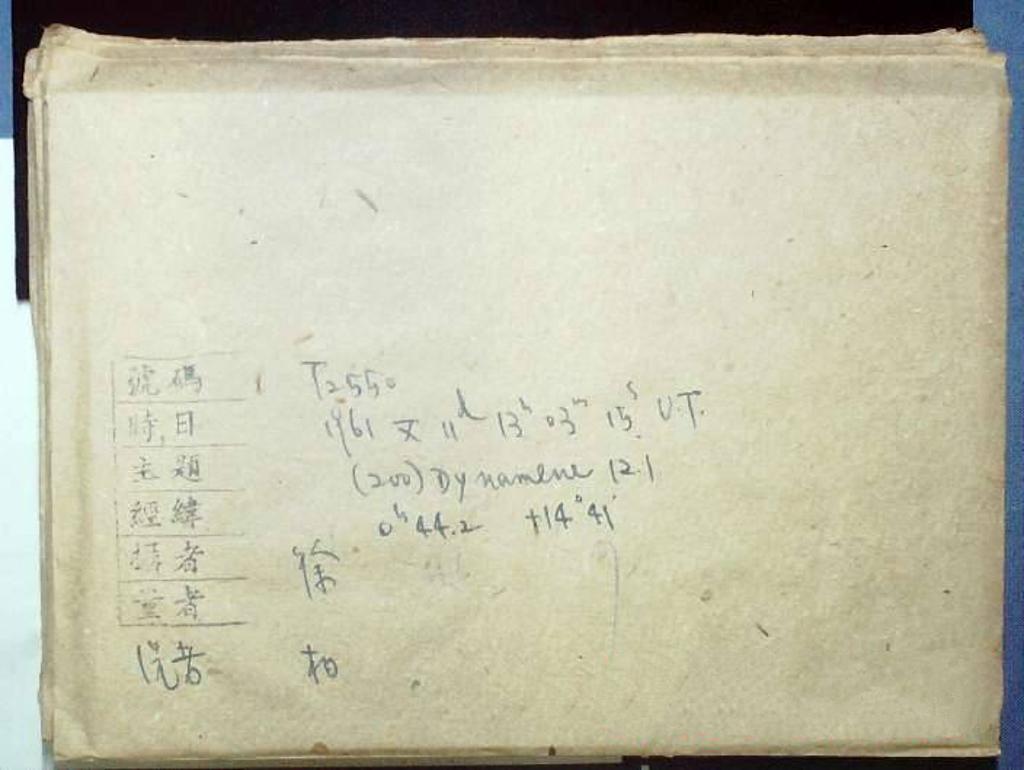 號碼 T2550
時日 1961 X 11d 13h 03m 15s U.T.
主題 (200) Dynamene 12.1
經緯 0h 44.2 +14°41'
者 徐
者
者 柏